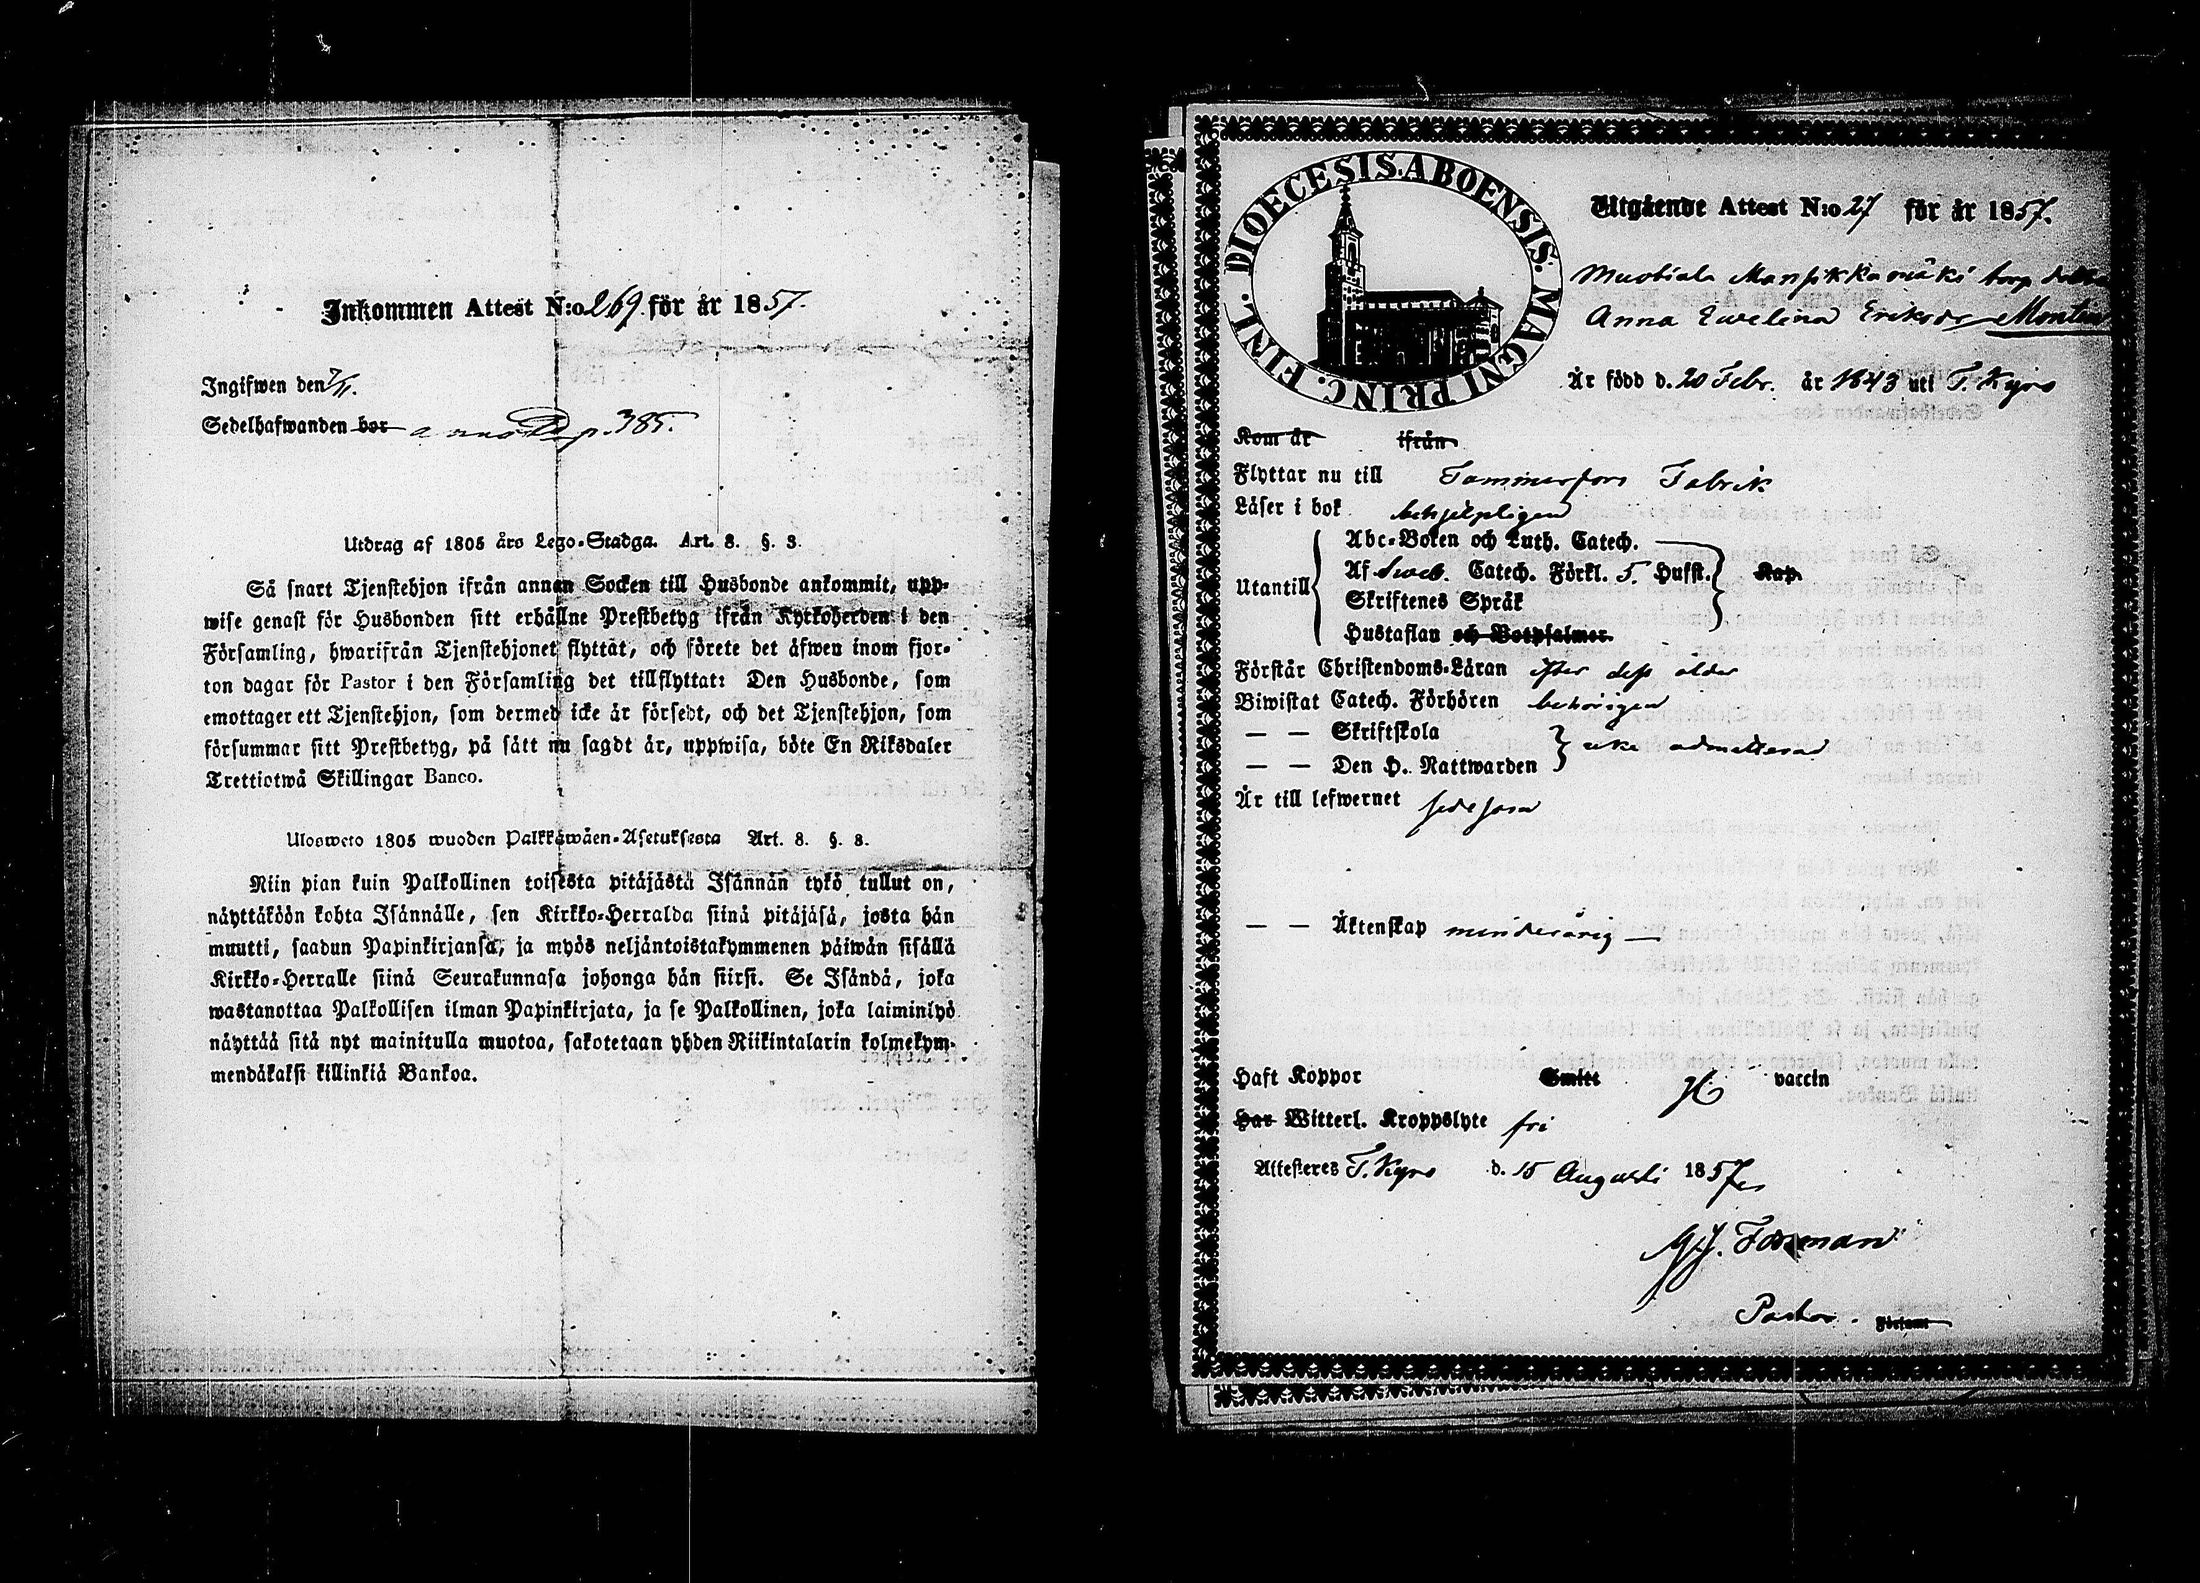 Inkommen Attest N:o 269 för år 1857.
Ingifwen den 7/11.
Sedelhafwanden bor p. 385.
Utdrag af 1805 års Lego-Stadga. Art. 8. §. 3.
Så snart Tjenstehjon ifrån annan Socken till Husbonde ankommit, upp-
wise genast för Husbonden sitt erhållne Prestbetyg ifrån Kyrkoherden i den
Församling, hwarifrån Tjenstehjonet flyttat, och förete det äfwen inom fjor-
ton dagar för Pastor i den Församling det tillflyttat: Den Husbonde, som
emottager ett Tjenstehjon, som dermed icke är försedt, och det Tjenstehjon, som
försummar sitt Prestbetyg, på sätt nu sagdt är, uppwisa, böte En Riksdaler
Trettiotwå Skillingar Banco.
Ulosweto 1805 wuoden Palkkawäen-Asetuksesta Art. 8. §. 8.
Niin pian kuin Palkollinen toisesta pitäjästä Isännän tykö tullut on,
näyttäköön kohta Isännälle, sen Kirkko-Herralda siinä pitäjäsä, josta hän
muutti, saadun Papinkirjansa, ja myös neljäntoistakymmenen päiwän sisällä
Kirkko-Herralle siinä Seurakunnasa johonga hän siirsi. Se Isändä, joka
wastanottaa Palkollisen ilman Papinkirjata, ja se Palkollinen, joka laiminlyö
näyttää sitä nyt mainitulla muotoa, sakotetaan yhden Riikintalarin kolmekym-
mendäkaksi killinkiä Bankoa.
DIOECESIS. ABOENSIS. MAGNI PRINC. FINL.
Utgående Attest N:o 27 för år 1857.
Mansikkamäki torp
Anna Ewelina Eriksdr
Är född d. 20 Febr. år 1843 uti T. Kyro
Kom år ifrån
Flyttar nu till Tammerfors Fabrik
Läser i bok behjelpligen
Abc-Boken och Luth. Catech.
Utantill Af Sweb. Catech. Förkl. 5. Hufst. Kap.
Skriftenes Språk
Hustaflan och Botpsalmer.
Förstår Christendoms-Läran efter dess ålder
Biwistat Catech. Förhören behörigen
— — Skriftskola
— — Den H. Nattwarden icke admitterad
Är till lefwernet sedesam
— — Äktenskap minderårig —
Haft Koppor Smitt vaccin
Har Witterl. Kroppslyte fri
Attesteres T. Kyro d. 15 Augusti 1857
Forsman
Pastor. Församl